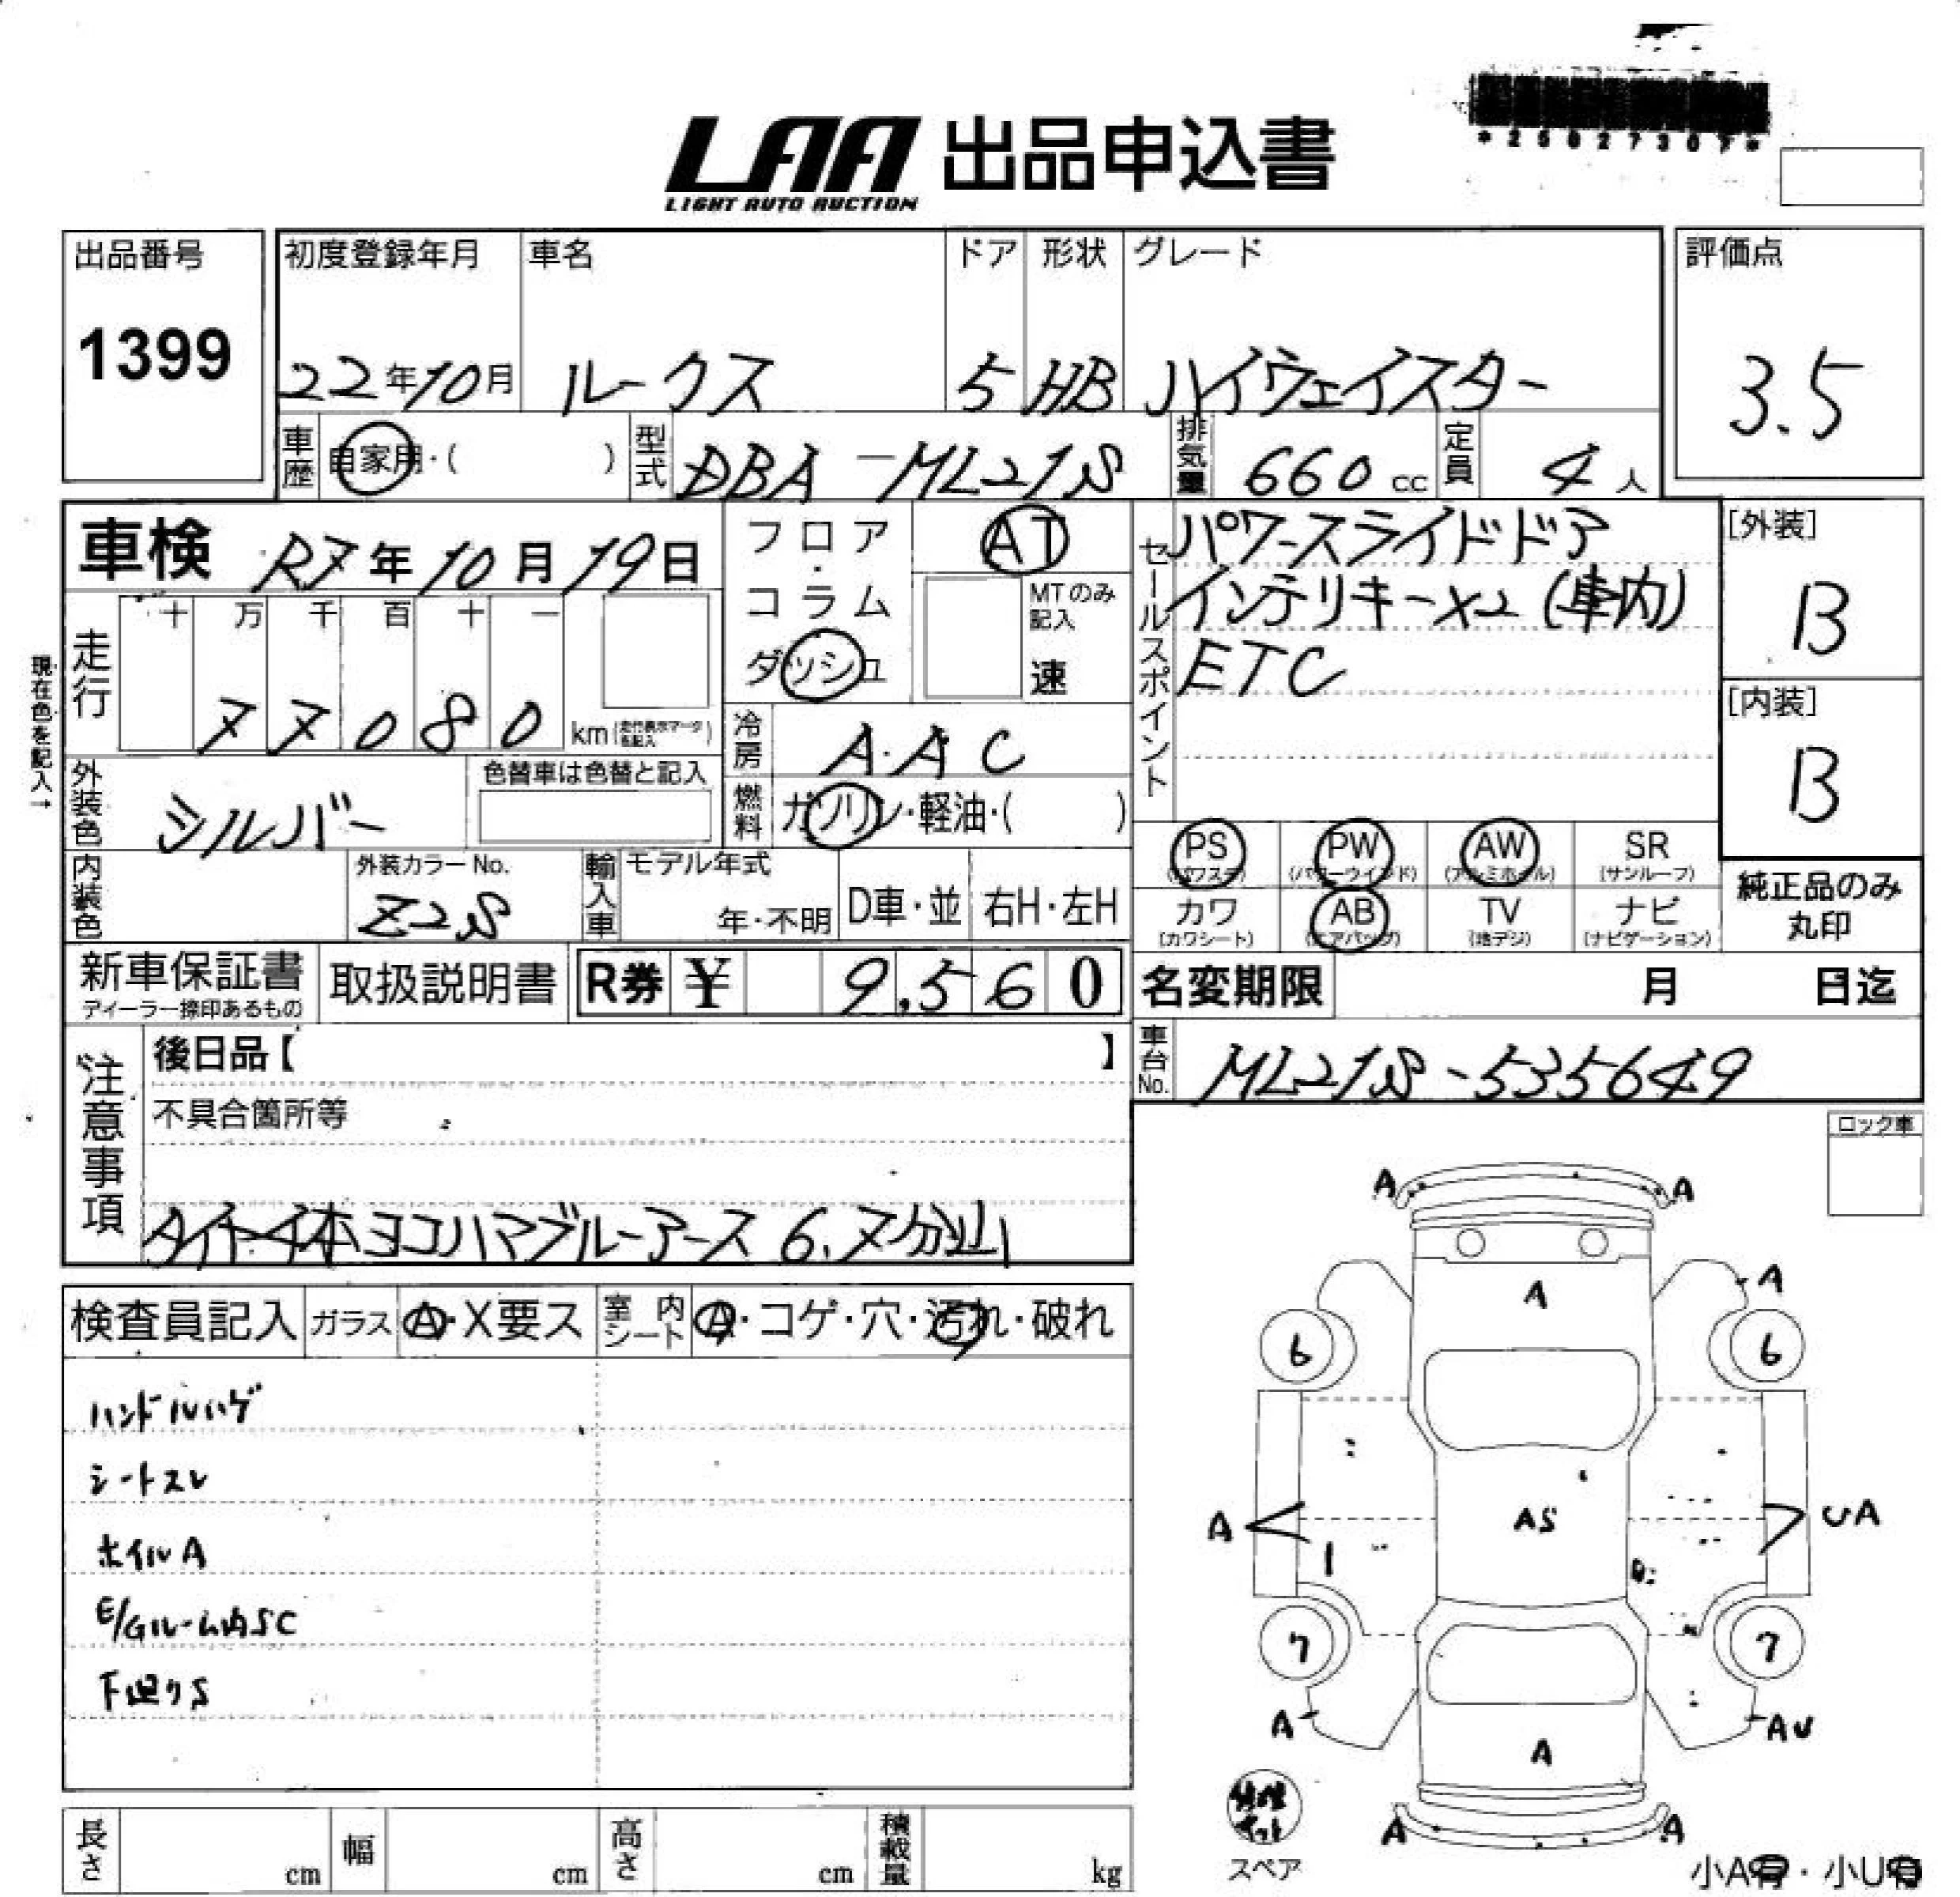 LAA 出品申込書
LIGHT AUTO AUCTION
出品番号
1399
初度登録年月
22年10月
車名
ルークス
ドア
5
形状
HB
グレード
ハイウェイスター
評価点
3.5
車歴
自家用・( )
型式
DBA-ML21S
排気量
660cc
定員
4人
車検 R7年10月19日
フロア・コラム
ダッシュ
AT
MTのみ記入
速
セールスポイント
パワースライドドア
インテリキー×2 (車内)
ETC
[外装]
B
[内装]
B
現在色を記入→
走行
十 万 千 百 十 一
77080
km
冷房
A.A C
燃料
ガソリン・軽油・( )
外装色
シルバー
色替車は色替と記入
内装色
外装カラーNo.
Z2S
輸入車
モデル年式
年・不明
D車・並
右H・左H
PS (パワステ)
PW (パワーウインド)
AW (アルミホイル)
SR (サンルーフ)
カワ (カワシート)
AB (エアバッグ)
TV (地デジ)
ナビ (ナビゲーション)
純正品のみ
丸印
新車保証書
ディーラー捺印あるもの
取扱説明書
R券 ¥ 9,560
名変期限 月 日迄
車台No.
ML21S-535649
注意事項
後日品【 】
不具合箇所等
タイヤ4本ヨコハマブルーアース 6.7分山
ロック車
検査員記入
ガラス
A・X要ス
室内シート
A・コゲ・穴・汚れ・破れ
ハンドルハゲ
シートスレ
ホイルA
E/Gルーム内SC
下廻りS
A A
A A
6 6
A AS UA
7 7
A AU
A
A A
修理キット
スペア
小A有・小U有
長さ cm
幅 cm
高さ cm
積載量 kg